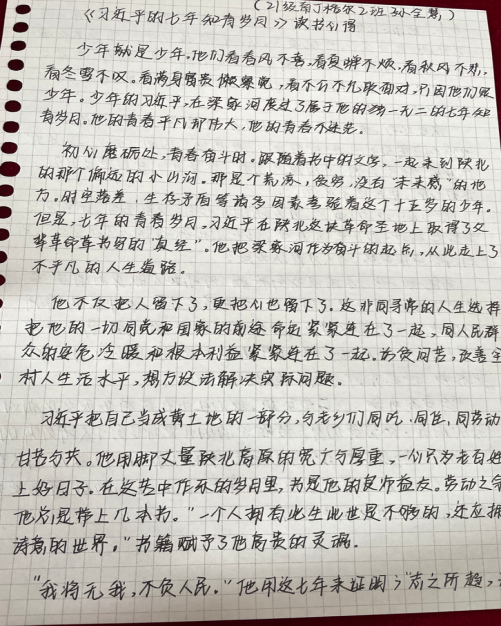 (21级
《习近平的七年知青岁月》读书心得
少年就是少年,他们看春风不喜,看夏蝉不烦,看秋风不悲,
看冬雪不叹。看满身富贵懒察觉,看不公不允敢面对,只因他们是
少年。少年的习近平,在梁家河度过了属于他的独一无二的七年知
青岁月。他的青春平凡却伟大,他的青春不迷茫。
初心磨砺处,青春奋斗时。跟随着书中的文字,一起来到陕北
的那个偏远的小山沟。那是个荒凉、贫穷,没有“未来感”的地
方。时空落差、生存矛盾等诸多因素考验着这个十五岁的少年。
但是,七年的青春岁月,习近平在陕北这块革命圣地上取得了父
辈革命事书写的“真经”。他把梁家河作为奋斗的起点,从此走上了
不平凡的人生道路。
他不仅把人留下了,更把心也留下了。这非同寻常的人生选择
把他的一切同党和国家的前途命运紧紧连在了一起,同人民群
众的安危冷暖和根本利益紧紧连在了一起。访贫问苦,改善全
村人生活水平,想方设法解决实际问题。
习近平把自己当成黄土地的一部分,与老乡们同吃、同住、同劳动
甘苦与共。他用脚丈量陕北高原的宽广与厚重,一心只为老百姓
上好日子。在这苦中作乐的岁月里,书是他的良师益友。劳动之
他总是带上几本书。“一个人拥有此生此世是不够的,还应拥
诗意的世界。”书籍赋予了他高贵的灵魂。
“我将无我,不负人民。”他用这七年来证明了“志之所趋,